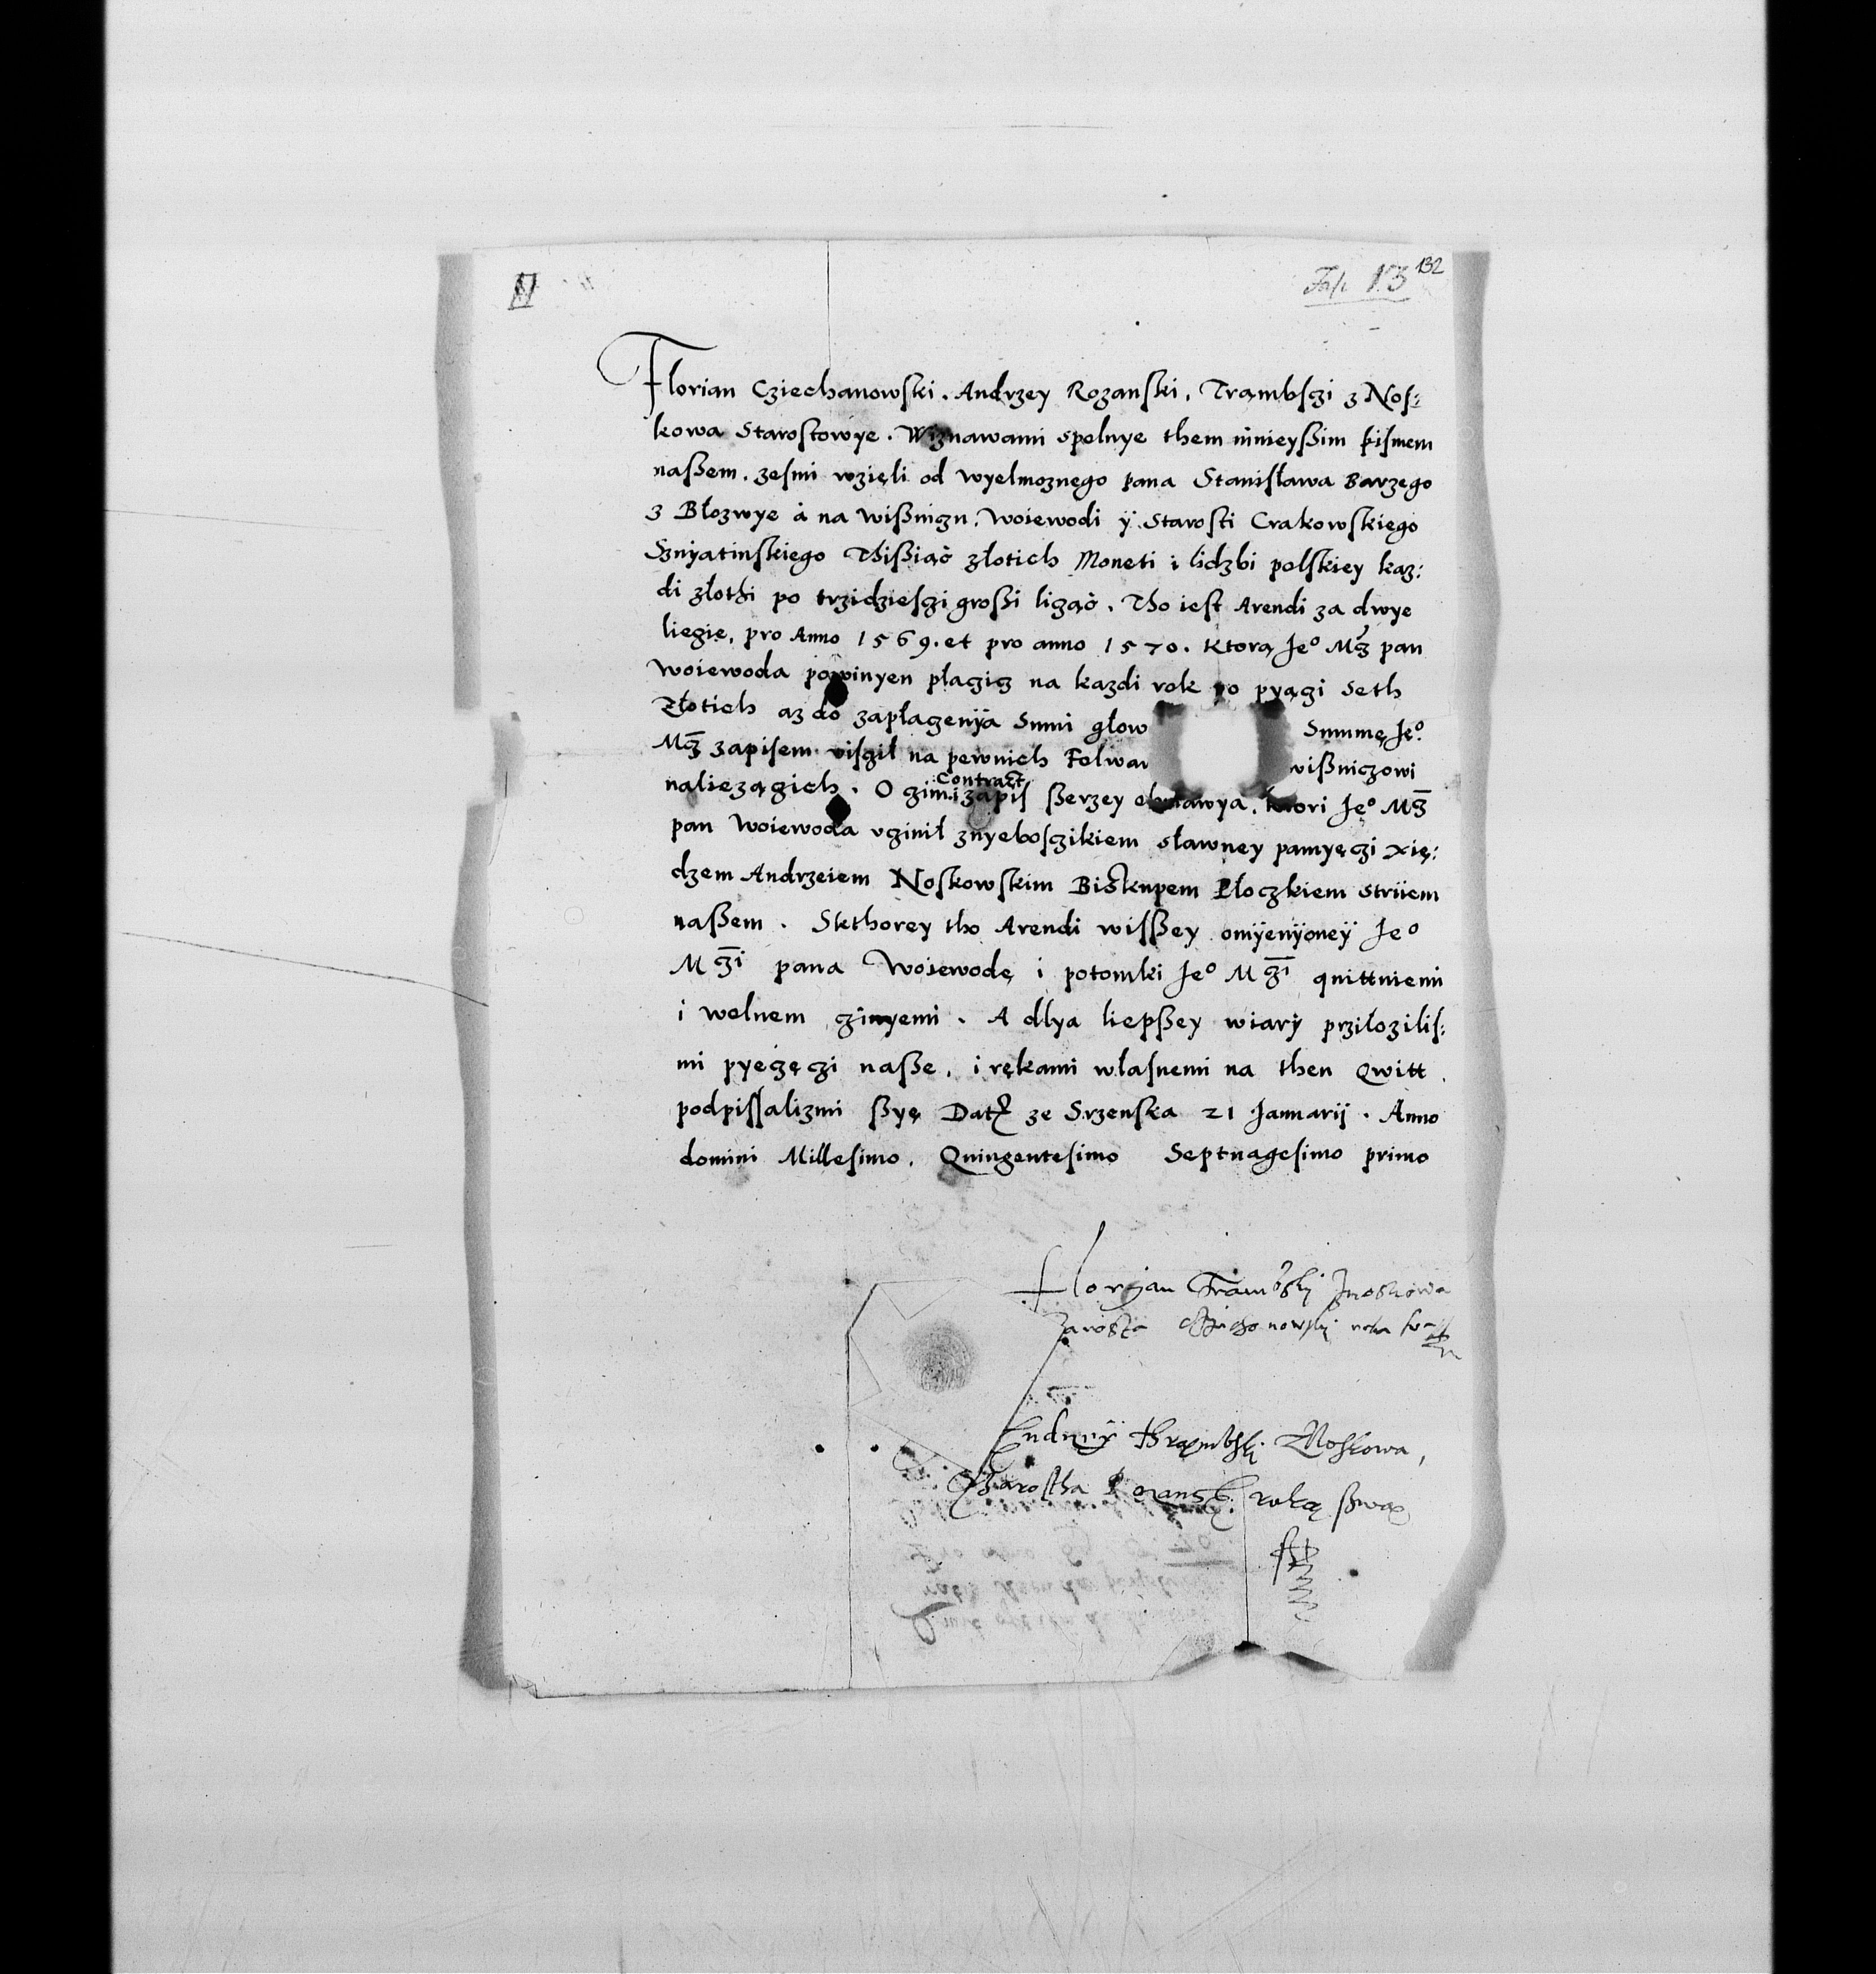 132
Fol. 13
Florian Cziechanowski. Andrzey Rozanski, Trąmbsczi z Nos:
kowa Starostowye. Wiznawami spelnye them ninieyßim pismem
naßem. zesmi wzięli od wyelmoznego pana Stanisława Barzego
z Błozwye á na wißniczu. Woiewodi ÿ Starosti Crakowskięgo
Sznyatinskięgo Thißiąc złotich Moneti i lidzbi polskiey kaz:
di złothi po trzidziesczi großi licząc. Tho iest Arendi za dwye
liecie, pro Anno 1569. et pro anno 1570. Ktorą Je° Mcz pan
woiewoda powinyen płacicz na kazdi rok po pyąci seth
Złotich az do zapłacenÿa Sumi głow Summę Ję°
Mcz zapisem visczil na pewnich Folwar wißniczowi
naliezącich. O czim i zapis ßerzey obmawya. ktori Ję° Mcz
Contract
pan Woiewoda vczinił znyebosczikiem sławney pamyęczi xię:
dzem Andrzeiem Noskowskim Biskupem Płoczkiem striiem
naßem. Skthorey tho Arendi wisßey omÿenÿoneÿ Je°
Mczi pana Woiewodę i potomki Je° Mczi quittuiemi
i wolnem czinyemi. A dlya liepßey wiarÿ prziłozilis:
mi pyeczęczi naße, i rękami własnemi na then Qwitt
podpissalizmi ßyę Dat ze Srzenska 21 Januarij. Anno
domini Millesimo. Quingentesimo Septuagesimo primo
Floryan Trambsky Znoskowa
Andrzÿ thrąmbski Znoskowa,
Sztarostha Rozansk. ręką ßwą